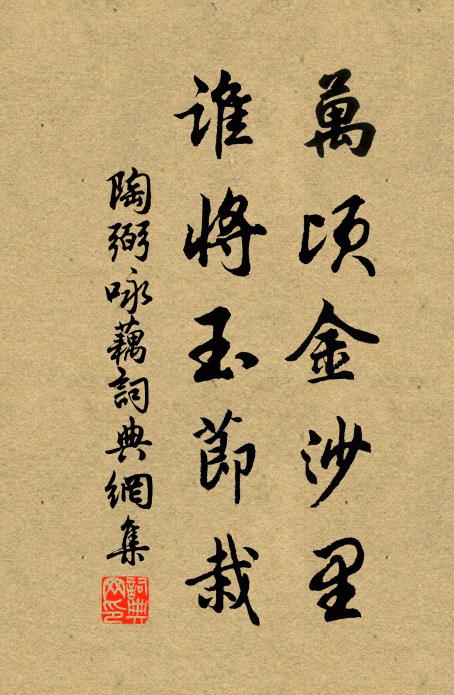 萬頃金沙里
誰將玉節栽
陶弼咏藕詞典網集
詞典网印